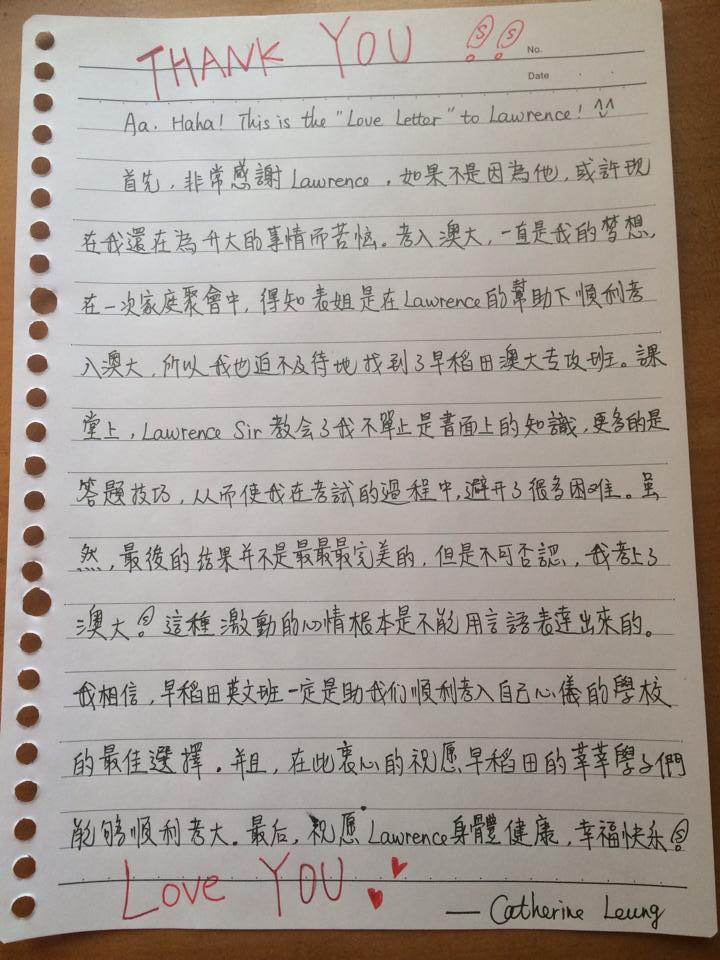 THANK YOU
No.
Date
Aa. Haha! This is the "Love Letter" to Lawrence! ^^
首先，非常感謝Lawrence，如果不是因為他，或許现
在我還在為升大的事情而苦恼。考入澳大，一直是我的梦想，
在一次家庭聚會中，得知表姐是在Lawrence的幫助下順利考
入澳大，所以我也迫不及待地找到了早稻田澳大专攻班。課
堂上，Lawrence Sir教会了我不單止是書面上的知識，更多的是
答題技巧，从而使我在考試的過程中，避开了很多困难。虽
然，最後的结果并不是最最最完美的，但是不可否認，我考上了
澳大！這種激動的心情根本是不能用言語表達出來的。
我相信，早稻田英文班一定是助我们順利考入自己心儀的學校
的最佳選擇。并且，在此衷心的祝愿早稻田的莘莘學子們
能够順利考大。最后，祝愿Lawrence身體健康，幸福快乐！
Love YOU
— Catherine Leung